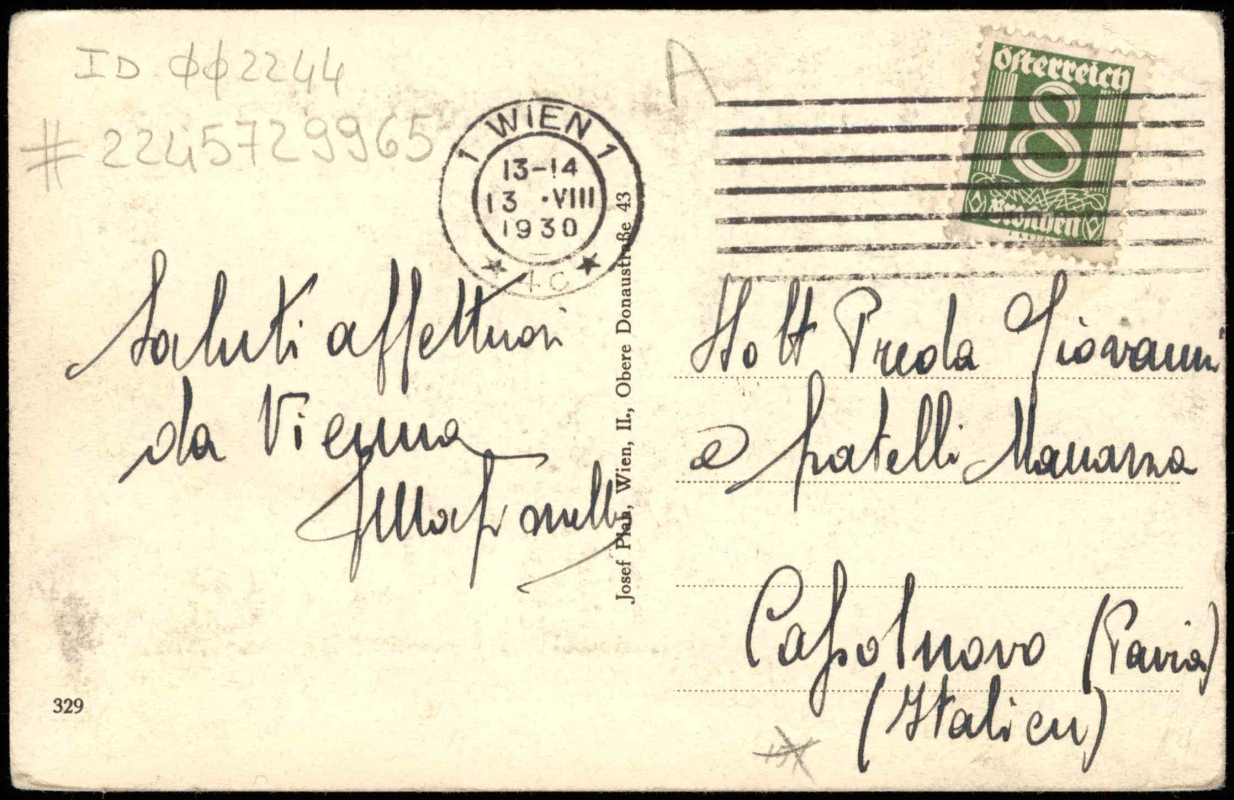 ID 002244
# 2245729965
A
1 WIEN 1
13-14
13 ·VIII
1930
4c
Österreich
8
Groschen
Saluti affettuosi
da Vienna
Josef Plan, Wien, II., Obere Donaustraße 43
Dott Preda Giovanni
e fratelli Manarza
Caſsolnovo (Pavia)
(Italien)
329